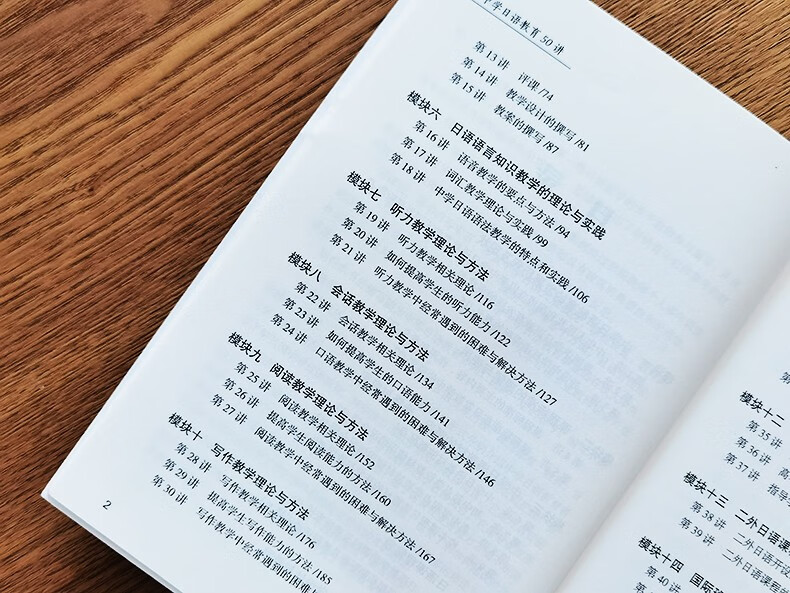 中学日语教育 50 讲
第 13 讲 评课 /74
第 14 讲 教学设计的撰写 /81
第 15 讲 教案的撰写 /87
模块六 日语语言知识教学的理论与实践
第 16 讲 语音教学的要点与方法 /94
第 17 讲 词汇教学理论与实践 /99
第 18 讲 中学日语语法教学的特点和实践 /106
模块七 听力教学理论与方法
第 19 讲 听力教学相关理论 /116
第 20 讲 如何提高学生的听力能力 /122
第 21 讲 听力教学中经常遇到的困难与解决方法 /127
模块八 会话教学理论与方法
第 22 讲 会话教学相关理论 /134
第 23 讲 如何提高学生的口语能力 /141
第 24 讲 口语教学中经常遇到的困难与解决方法 /146
模块九 阅读教学理论与方法
第 25 讲 阅读教学相关理论 /152
第 26 讲 提高学生阅读能力的方法 /160
第 27 讲 阅读教学中经常遇到的困难与解决方法 /167
模块十 写作教学理论与方法
第 28 讲 写作教学相关理论 /176
第 29 讲 提高学生写作能力的方法 /185
第 30 讲 写作教学中经常遇到的困难与解
2
模块十二
第 35 讲
第 36 讲
第 37 讲 指导
模块十三 二外日语课
第 38 讲 二外日语开设
第 39 讲 二外日语课程的
模块十四 国际
第 40 讲